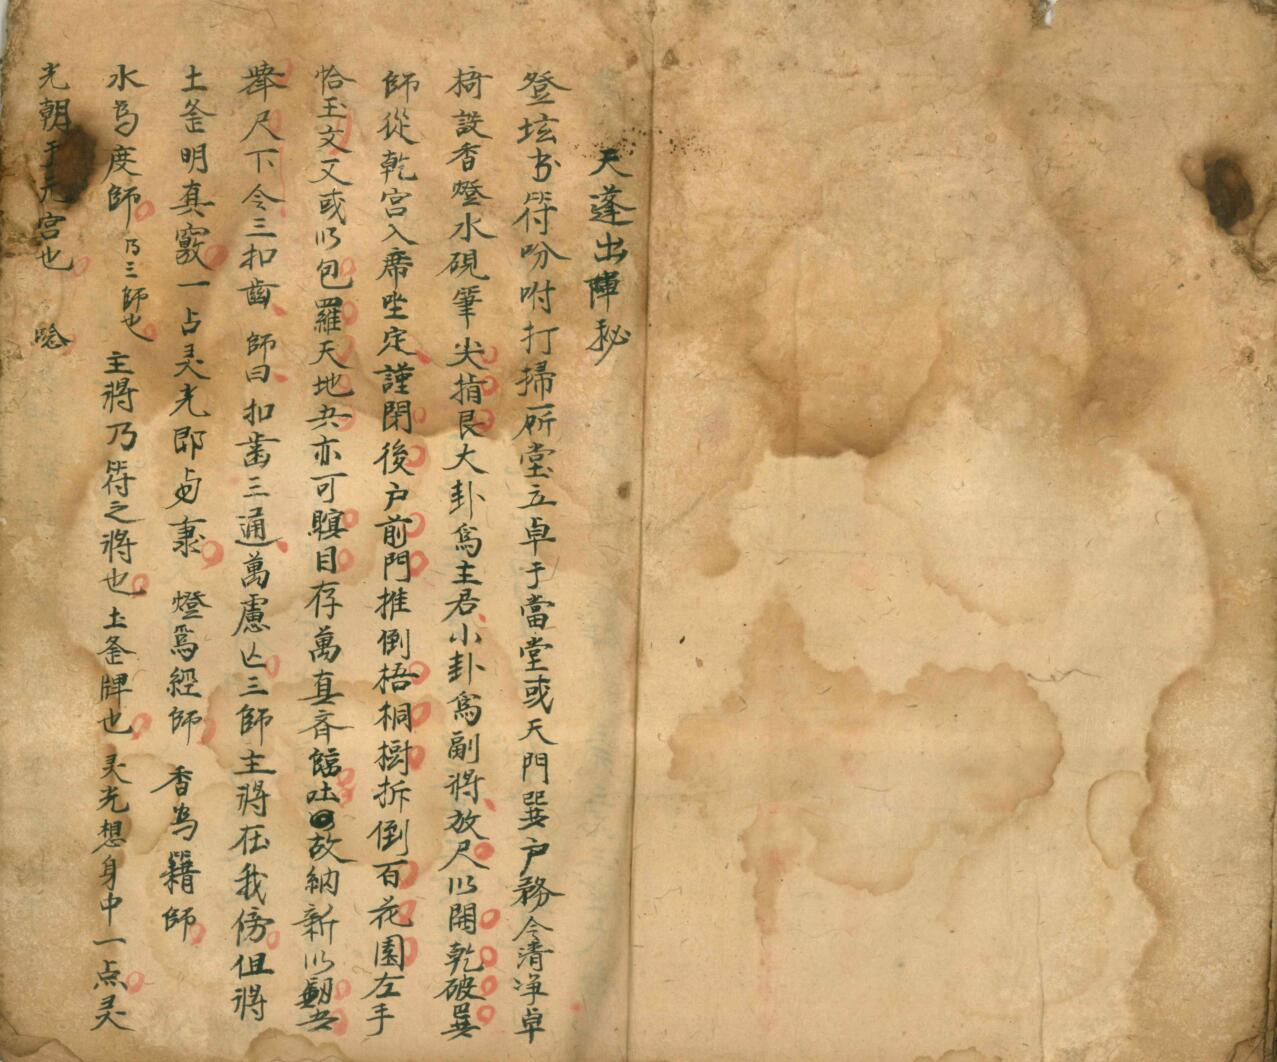 天蓬出陣秘
登坛书符吩咐打掃一所堂立卓于當堂或天門巽户務令清净卓
椅設香燈水硯筆尖指艮大卦爲主君小卦爲副將放尺以開乾破巽
師從乾宫入席坐定謹閉後户前門推倒梧桐樹拆倒百花園左手
恰玉文又或以包羅天地共亦可瞑目存萬真齐臨吐故納新以
舉尺下令三扣齒師曰扣齒三通萬慮亡三師主將在我傍但將
土釜明真竅一占灵光即燈爲經師香为籍師
水为度師乃三師也主將乃符之將也土釜牌也灵光想身中一点灵
光朝于元宫也唸